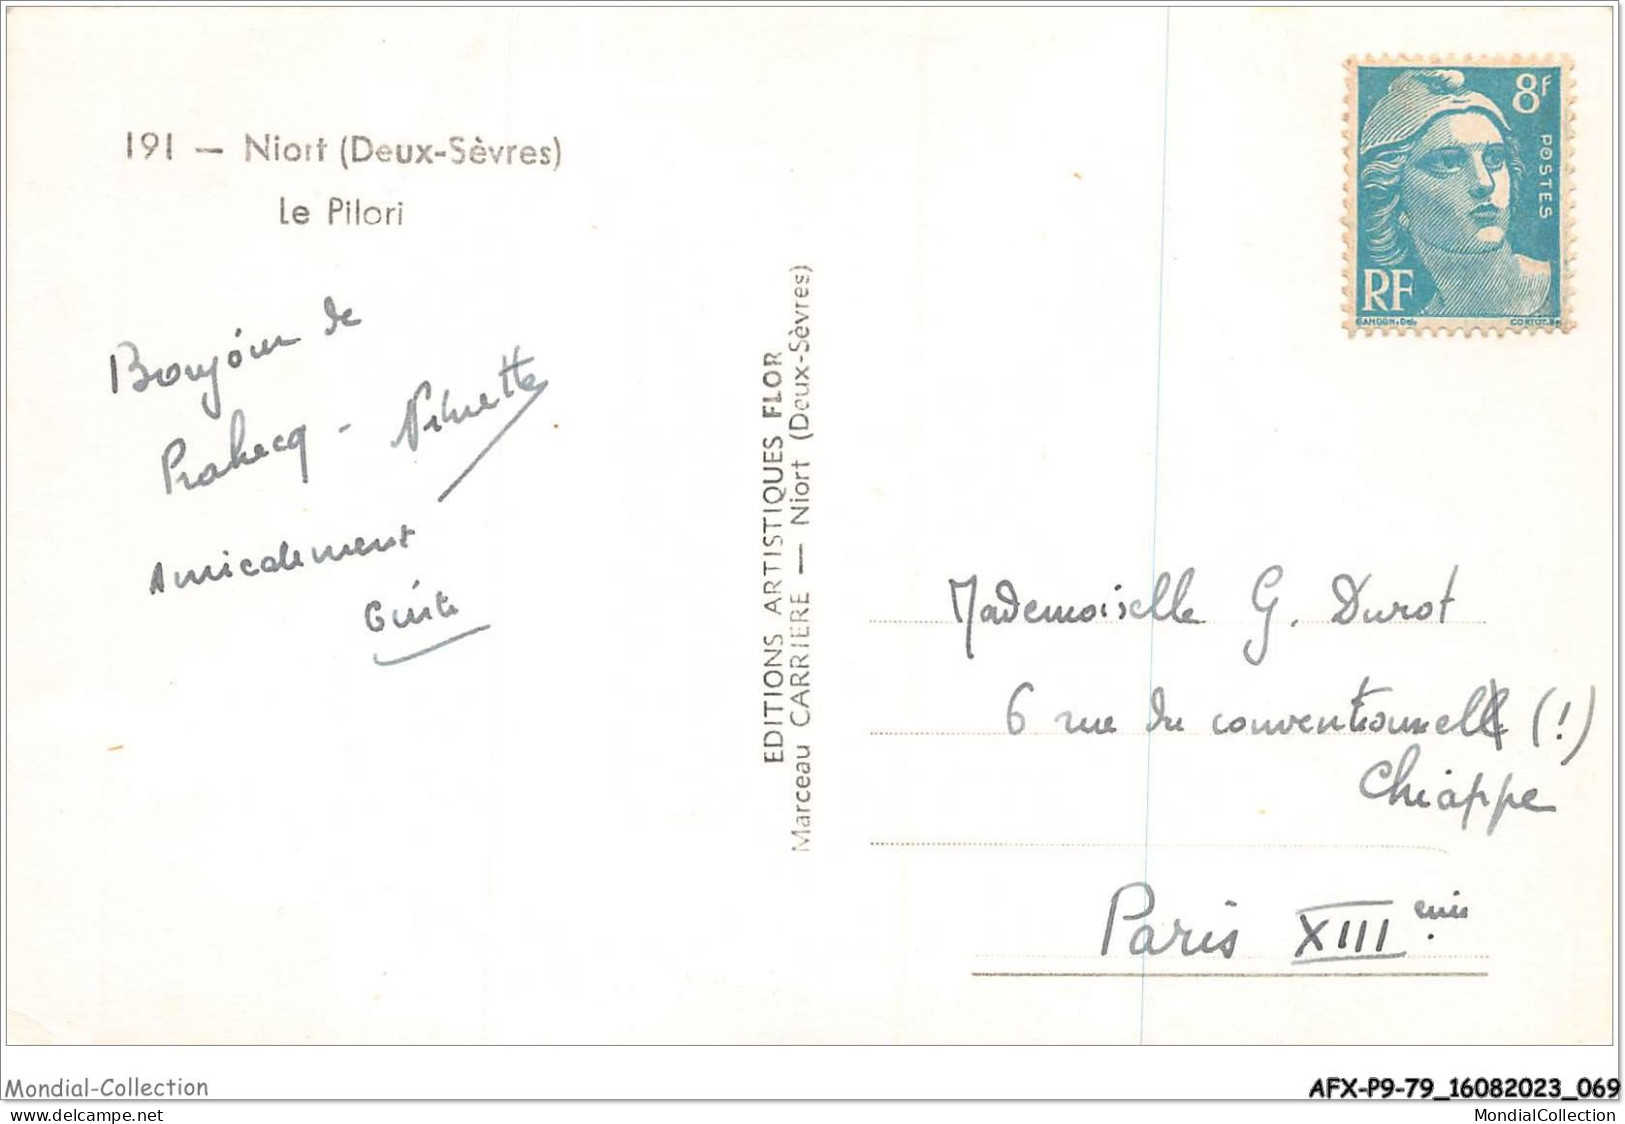 191 — Niort (Deux-Sèvres)
Le Pilori
Bonjour de
Prahecq -
Amicalement
Guite
EDITIONS ARTISTIQUES FLOR
Marceau CARRIERE — Niort (Deux-Sèvres)
8F
POSTES
RF
GANDON
CORTOT
Mademoiselle G. Durot
6 rue du conventionnel (!)
Chiappe
Paris XIII eme
Mondial-Collection
AFX-P9-79_16082023_069
www.delcampe.net
MondialCollection